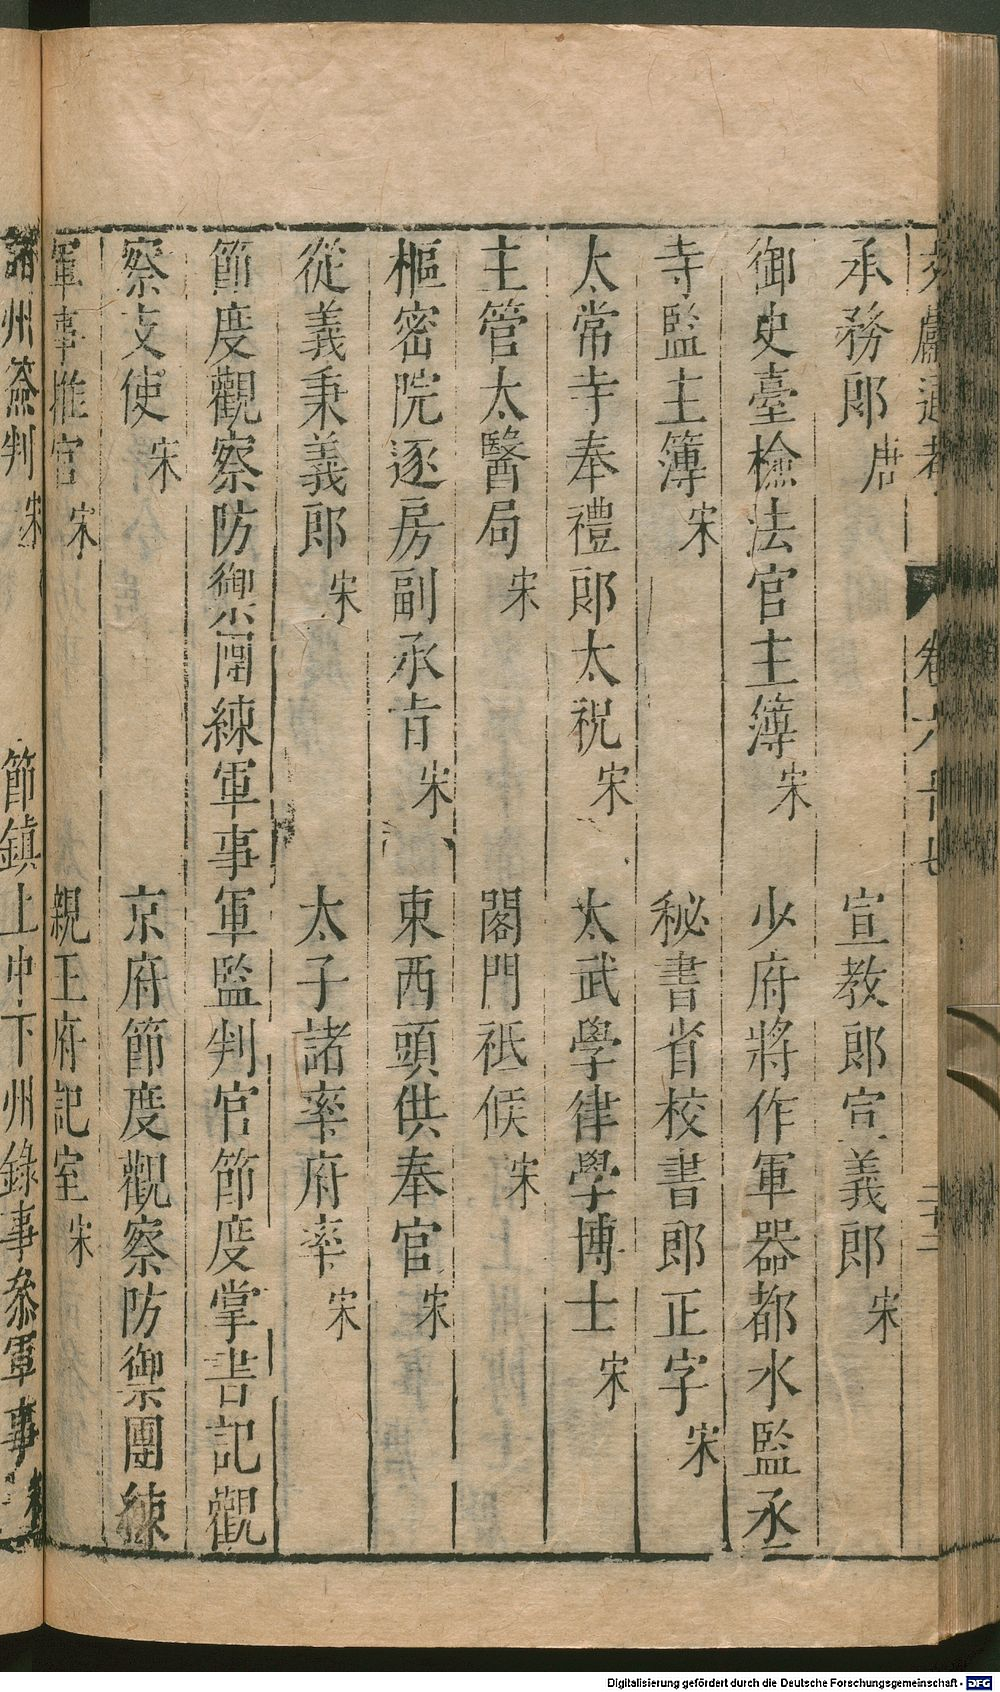 文獻通考 卷六十七 二十二
承務郎唐 宣教郎宣義郎宋
御史臺檢法官主簿宋 少府將作軍器都水監丞
寺監主簿宋 秘書省校書郎正字宋
太常寺奉禮郎太祝宋 太武學律學博士宋
主管太醫局宋 閣門祗候宋
樞密院逐房副承旨宋 東西頭供奉官宋
從義秉義郎宋 太子諸率府率宋
節度觀察防禦團練軍事軍監判官節度掌書記觀
察支使宋 京府節度觀察防禦團練
軍事推官宋 親王府記室宋
諸州簽判宋 節鎮上中下州錄事參軍事
Digitalisierung gefördert durch die Deutsche Forschungsgemeinschaft - DFG